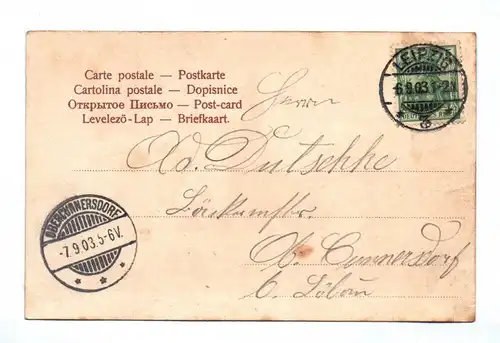 Carte postale — Postkarte
Cartolina postale — Dopisnice
Открытое Письмо — Post-card
Levelezö-Lap — Briefkaart.
LEIPZIG
6.9.03.1-2N
3
Herrn
Ad. Dutschke
Bäckermstr.
Ob. Cunnersdorf
b. Löbau
OBERCUNNERSDORF
-7.9.03.5-6V.